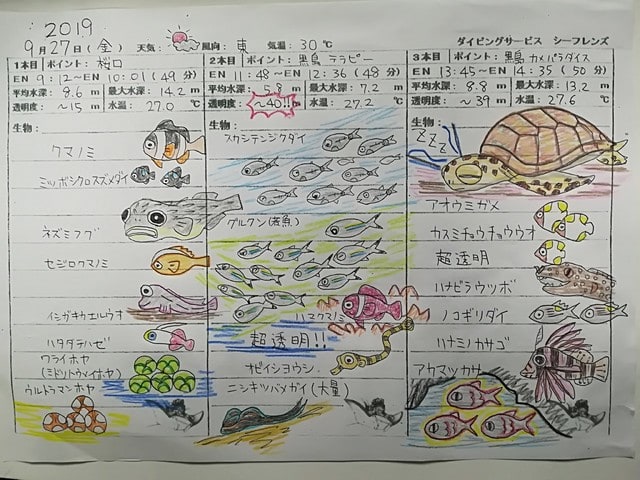 2019
9月27日(金) 天気: 風向: 東 気温: 30℃ ダイビングサービス シーフレンズ
1本目 ポイント: 桜口
EN 9:12~EN 10:01(49分)
平均水深: 8.6m 最大水深: 14.2m
透明度: ~15m 水温: 27.0℃
生物:
クマノミ
ミツボシクロスズメダイ
ネズミフグ
セジロクマノミ
イシガキカエルウオ
ハタタテハゼ
ワライボヤ
(ミドリトウメイボヤ)
ウルトラマンホヤ
2本目 ポイント: 黒島 テラピー
EN 11:48~EN 12:36(48分)
平均水深: 5.8m 最大水深: 7.2m
透明度: ~40!!m 水温: 27.2℃
生物:
スカシテンジクダイ
グルクン(稚魚)
ハマクマノミ
超透明!!
オビイシヨウジ
ニシキツバメガイ(大量)
3本目 ポイント: 黒島 カメパラダイス
EN 13:45~EN 14:35(50分)
平均水深: 8.8m 最大水深: 13.2m
透明度: ~39m 水温: 27.6℃
生物:
ZZZ
アオウミガメ
カスミチョウチョウウオ
超透明
ハナビラウツボ
ノコギリダイ
ハナミノカサゴ
アカマツカサ